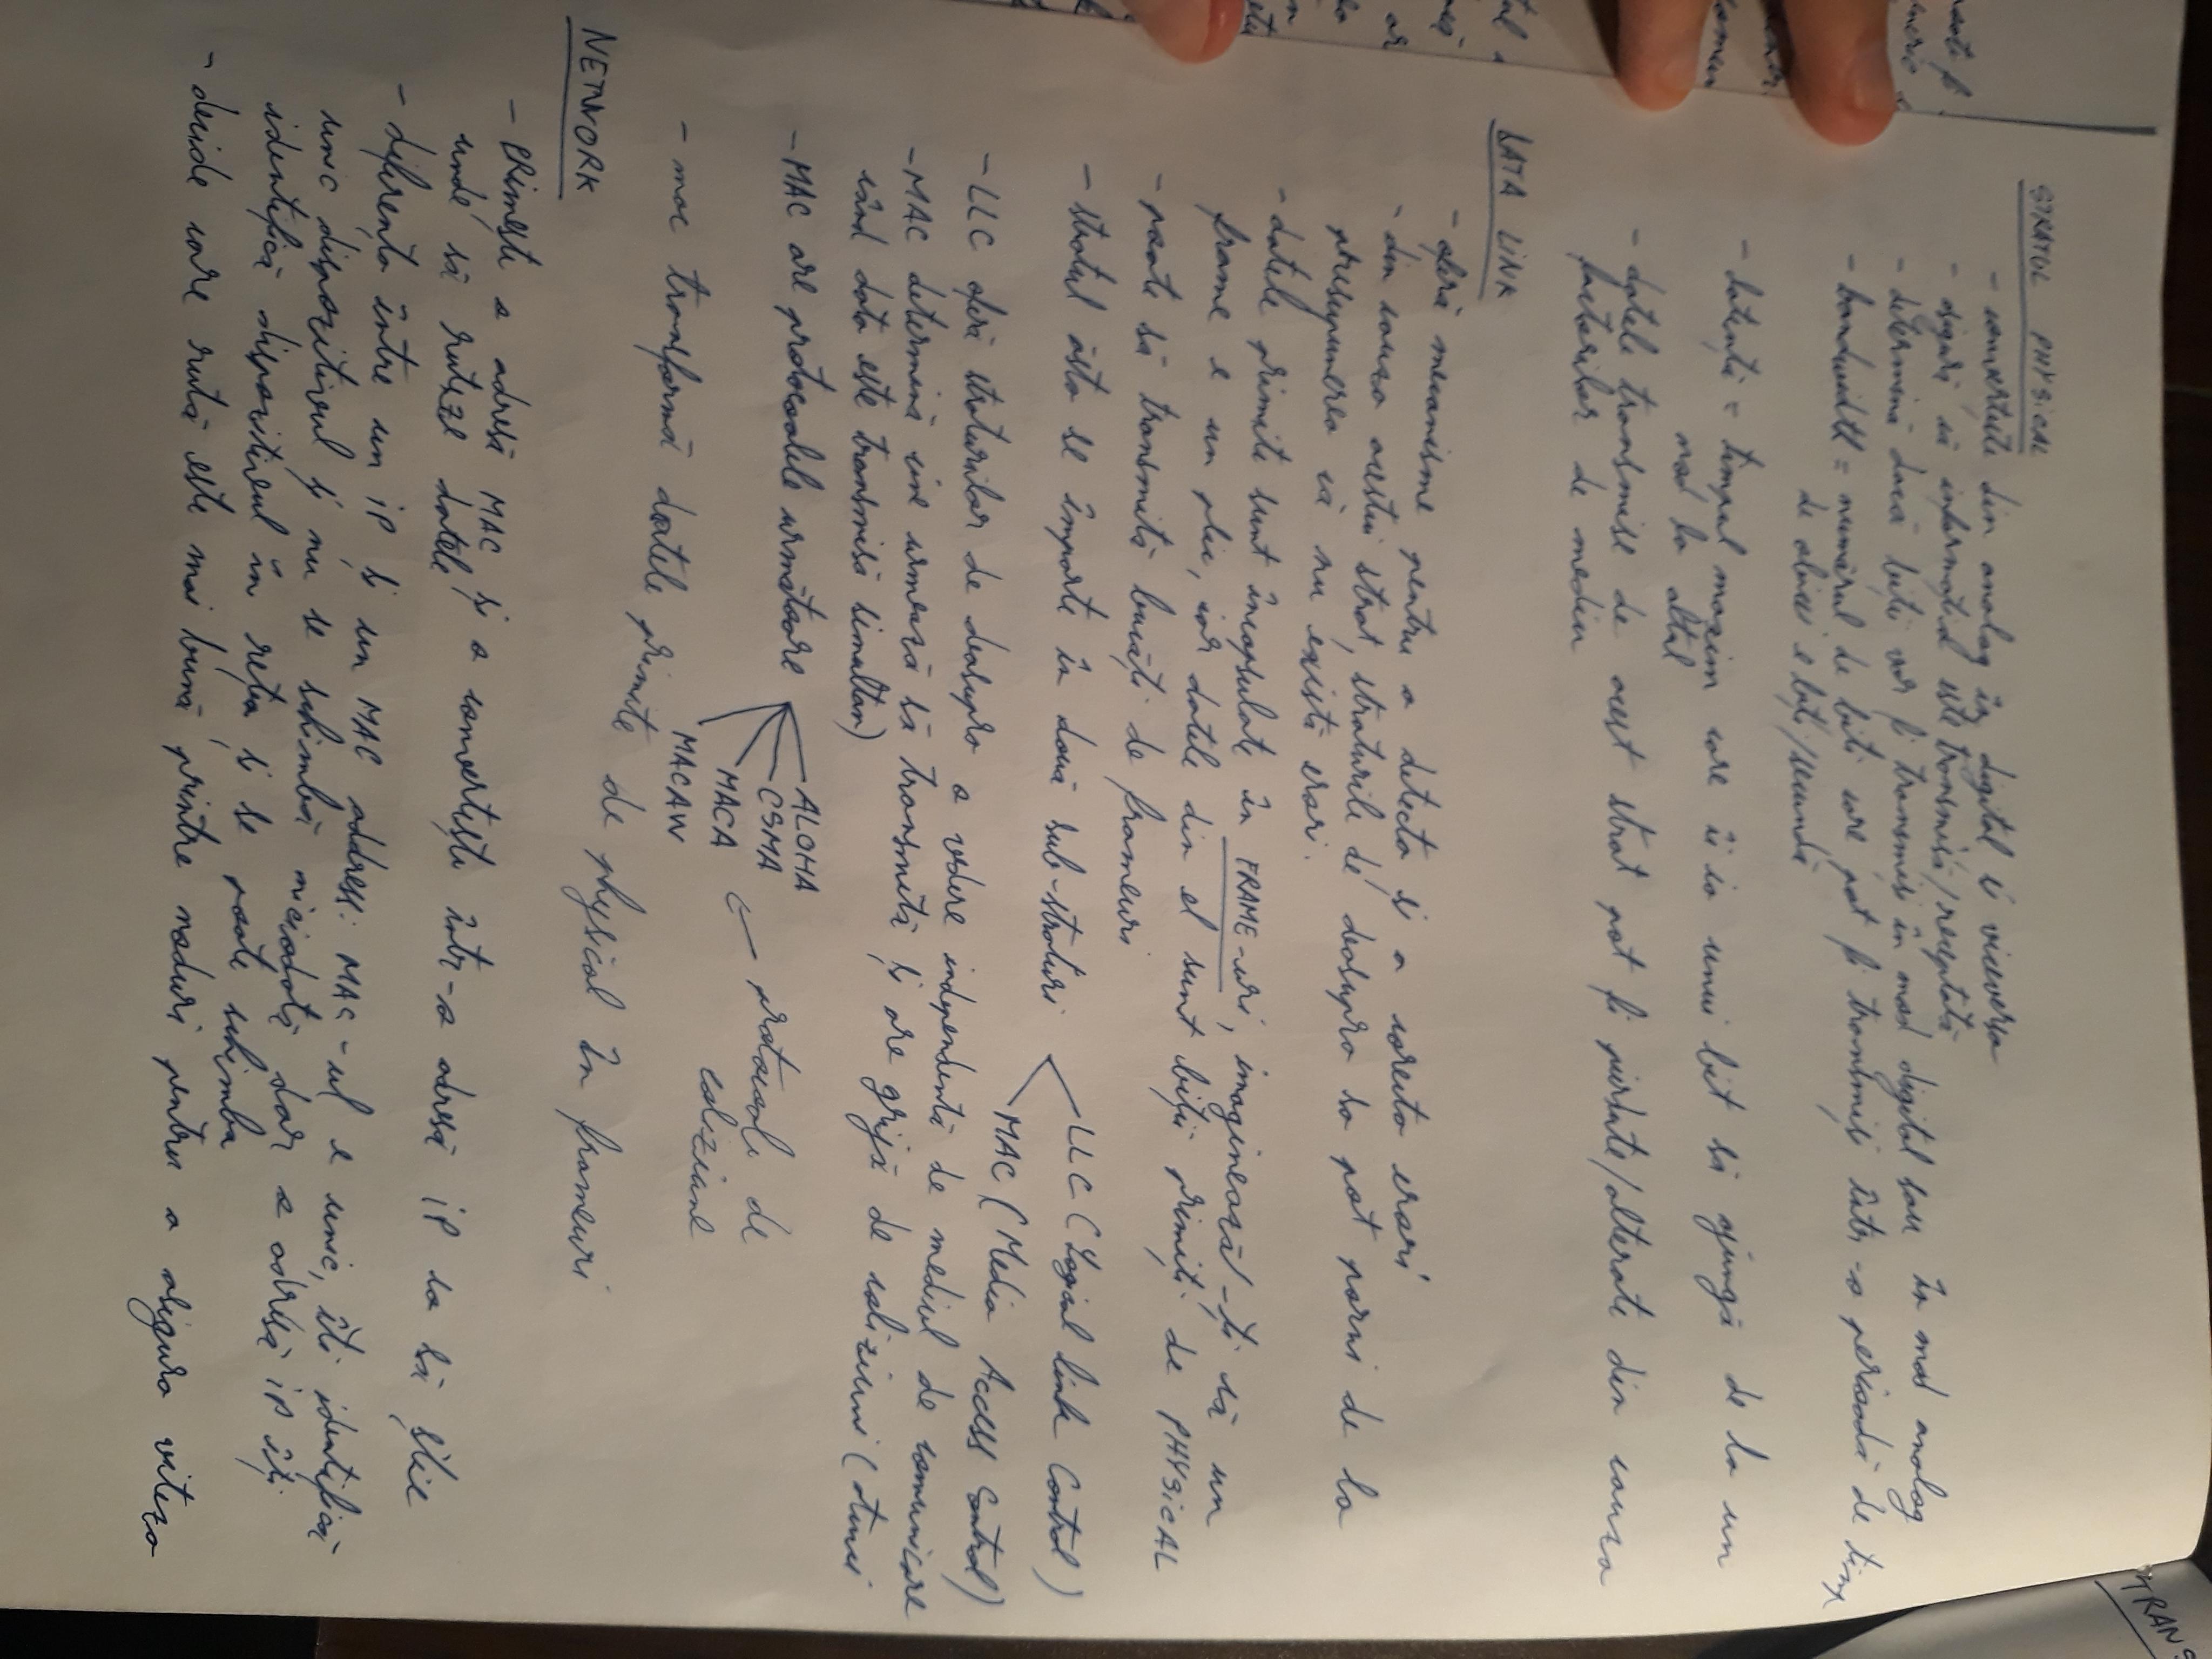 TRANS
STRATUL PHYSICAL
- convertește din analog în digital și viceversa
- asigură că informația este transmisă/receptată
- determină dacă biții vor fi transmiși în mod digital sau în mod analog
- bandwidth = numărul de biți care pot fi transmiși într-o perioadă de timp
de obicei e biți/secundă
- latență = timpul maxim care îi ia unui bit să ajungă de la un
nod la altul
- datele transmise de acest strat pot fi pierdute/alterate din cauza
factorilor de mediu
DATA LINK
- oferă mecanisme pentru a detecta și a corecta erori
- din cauza acestui strat, straturile de deasupra sa pot porni de la
presupunerea că nu există erori.
- datele primite sunt încapsulate în FRAME-uri, imaginează-ți că un
frame e un plic, iar datele din el sunt biții primiți de PHYSICAL
- poate să transmită bucăți de frameuri
- stratul ăsta se împarte în două sub-straturi
LLC (Logical link Control)
MAC (Media Access Control)
- LLC oferă straturilor de deasupra o vedere independentă de mediul de comunicare
- MAC determină cine urmează să transmită și are grijă de coliziuni (atunci
când data este transmisă simultan)
- MAC are protocoalele următoare
ALOHA
CSMA
MACA
MACAW
protocoale de
coliziune
- mac transformă datele primite de physical în frameuri
NETWORK
- PRimește o adresă MAC și o convertește într-o adresă iP ca să știe
unde să ruteze datele
- diferența între un iP și un MAC address: MAC-ul e unic, îți identifică
unic dispozitivul și nu se schimbă niciodată dar o adresă iP îți
identifică dispozitivul în rețea și se poate schimba
- decide care rută este mai bună printre noduri pentru a asigura viteza